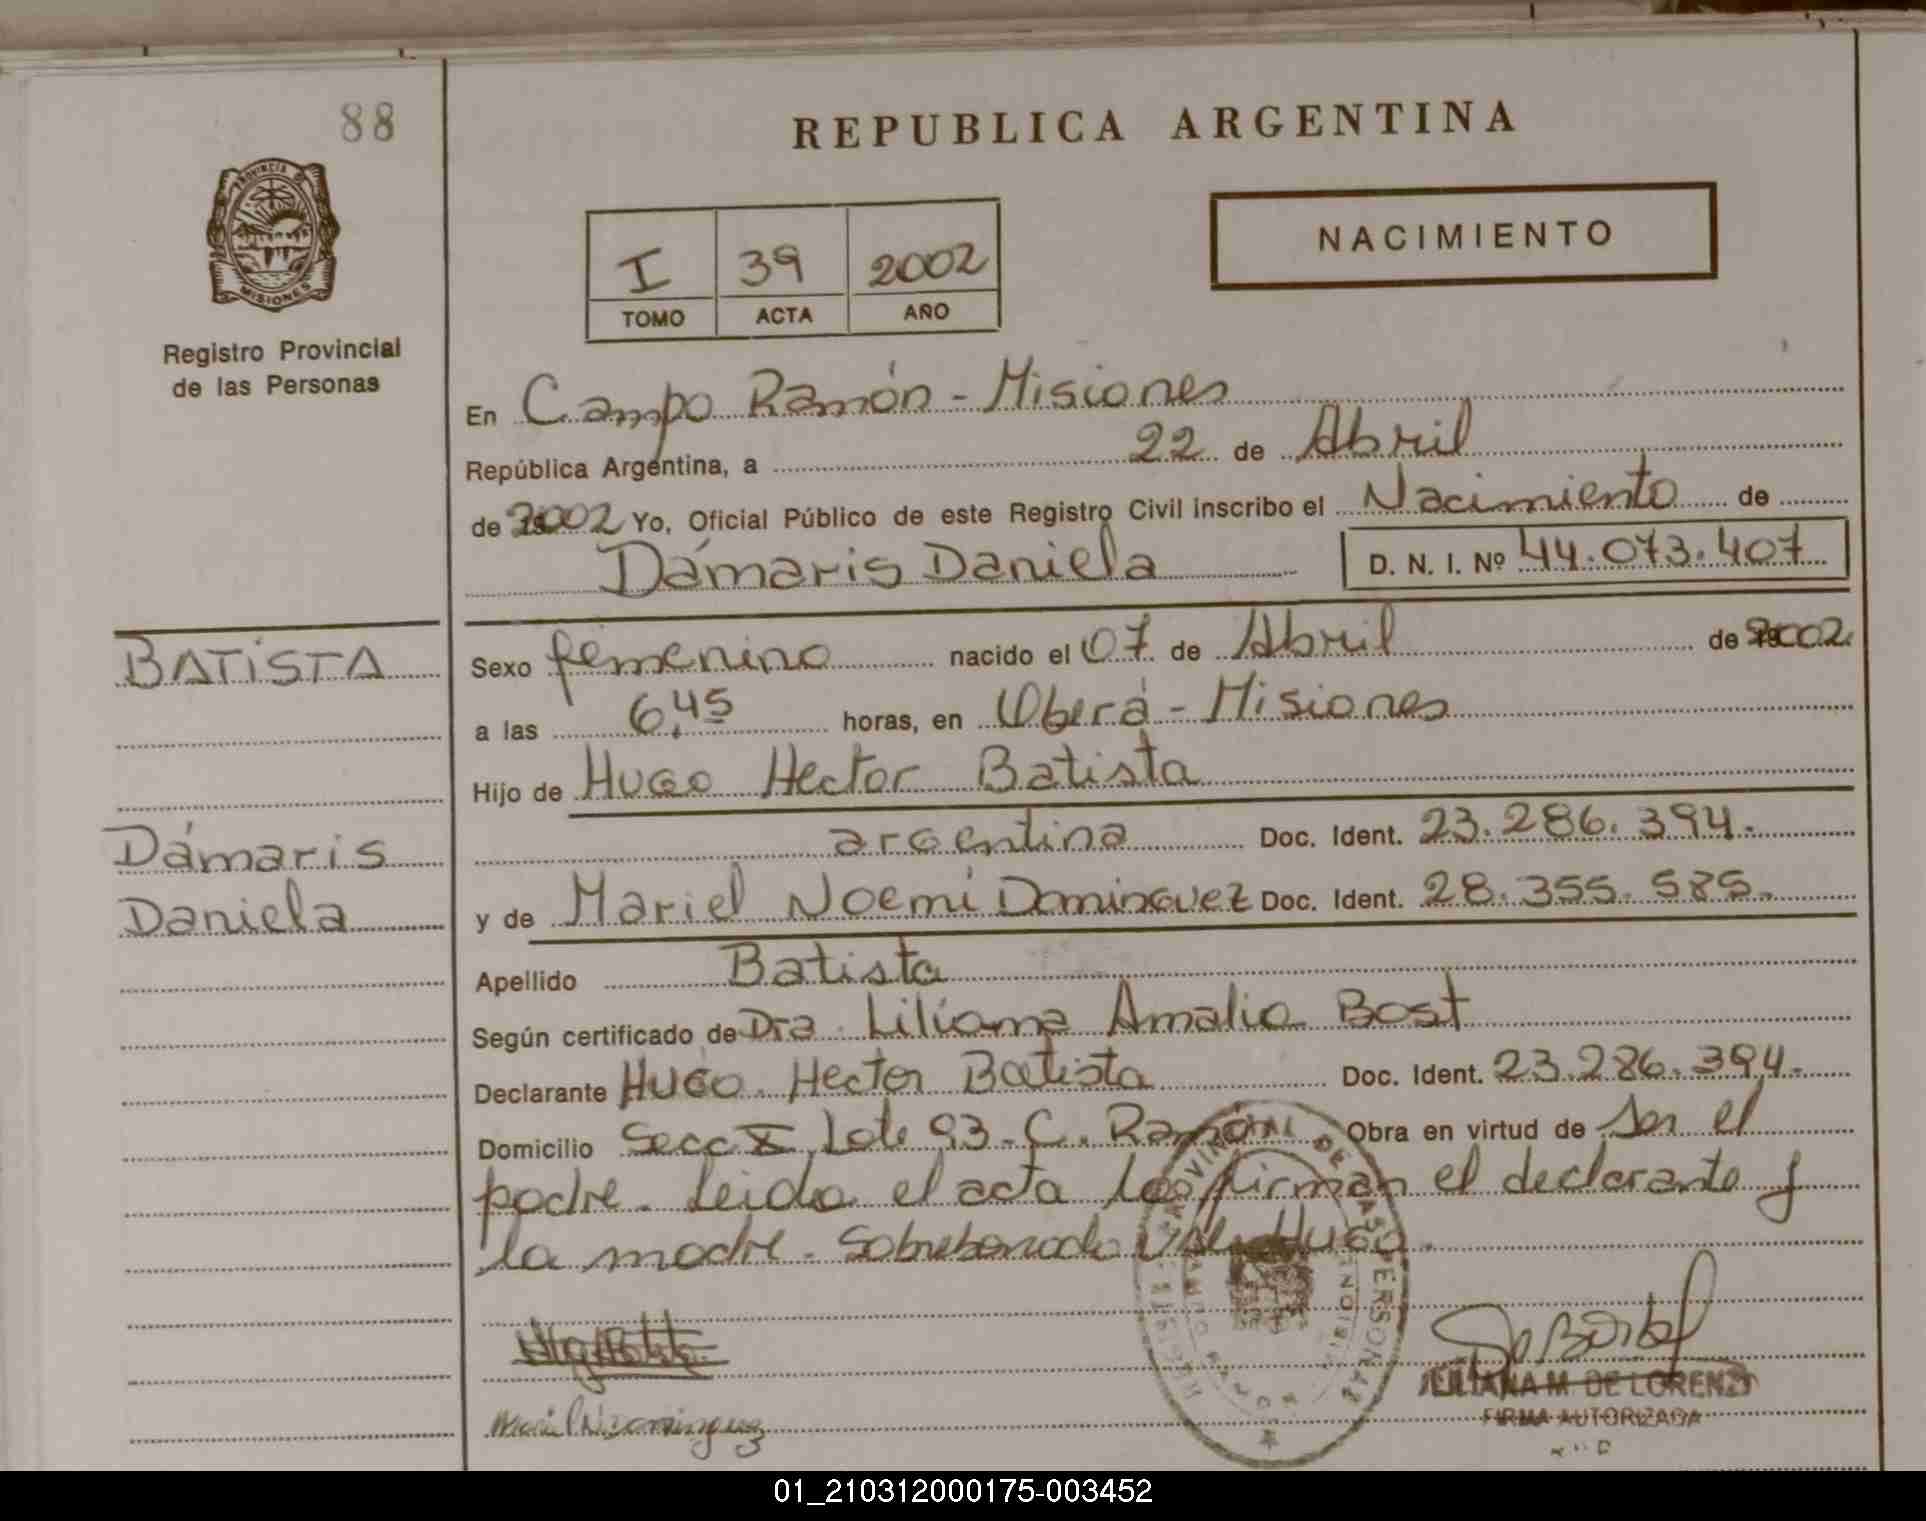 88
REPUBLICA ARGENTINA
PROVINCIA DE
MISIONES
Registro Provincial
de las Personas
I 39 2002
TOMO ACTA AÑO
NACIMIENTO
En Campo Ramón - Misiones
República Argentina, a 22 de Abril
de 2002 Yo, Oficial Público de este Registro Civil inscribo el Nacimiento de
Dámaris Daniela D. N. I. Nº 44.073.407
BATISTA
Sexo femenino nacido el 07 de Abril de 2002.
a las 6,45 horas, en Oberá - Misiones
Hijo de Hugo Hector Batista
Dámaris
argentina Doc. Ident. 23.286.394.
Daniela
y de Mariel Noemí Dominguez Doc. Ident. 28.355.585.
Apellido Batista
Según certificado de Dra. Liliana Amalia Bost
Declarante Hugo Hector Batista Doc. Ident. 23.286.394.
Domicilio Secc X Lote 93 - C. Ramón Obra en virtud de ser el
padre. Leida el acta la firman el declarante y
la madre. Sobreborrado Vale Hugo.
LILIANA M. DE LORENZI
FIRMA AUTORIZADA
01_210312000175-003452